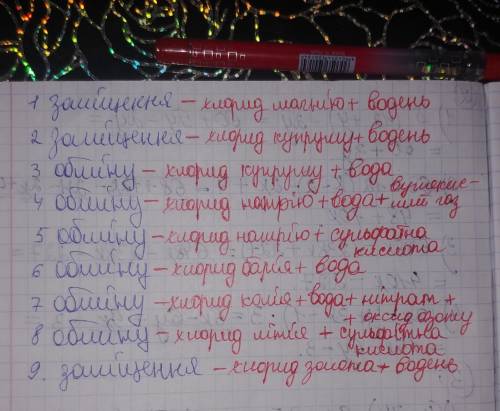 1 заміщення – хлорид магнію + водень
2 заміщення – хлорид купруму + водень
3 обміну – хлорид купруму + вода
4 обміну – хлорид натрію + вода + вуглекис-
лий газ
5 обміну – хлорид натрію + сульфатна
кислота
6 обміну – хлорид барія + вода
7 обміну – хлорид калія + вода + нітрат +
+ оксид азоту
8 обміну – хлорид літія + сульфатна
кислота
9. заміщення – хлорид золота + водень